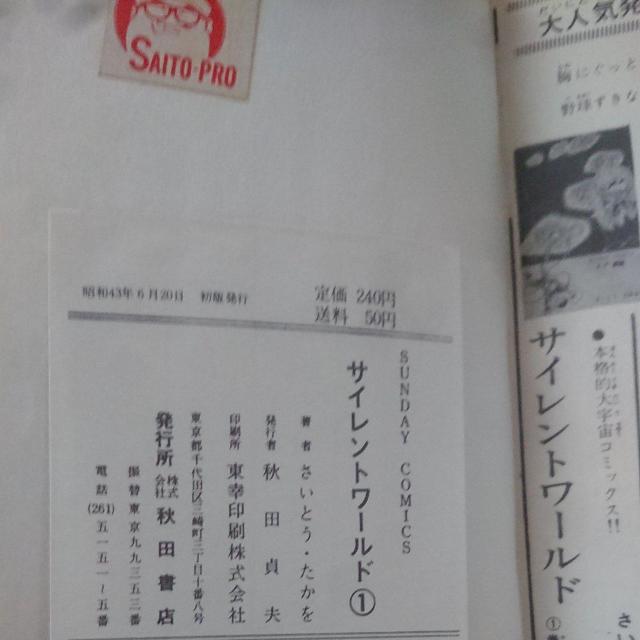 SAITO-PRO
昭和43年6月20日 初版発行
定価 240円
送料 50円
SUNDAY COMICS
サイレントワールド①
著者 さいとう・たかを
発行者 秋田貞夫
印刷所 東幸印刷株式会社
東京都千代田区三崎町三丁目十番八号
発行所 株式会社 秋田書店
振替東京九九二五三番
電話(261)五一五一~五番
大人気発
胸にぐっと
野球すきな
●本格的大宇宙コミックス!!
サイレントワールド①
さ